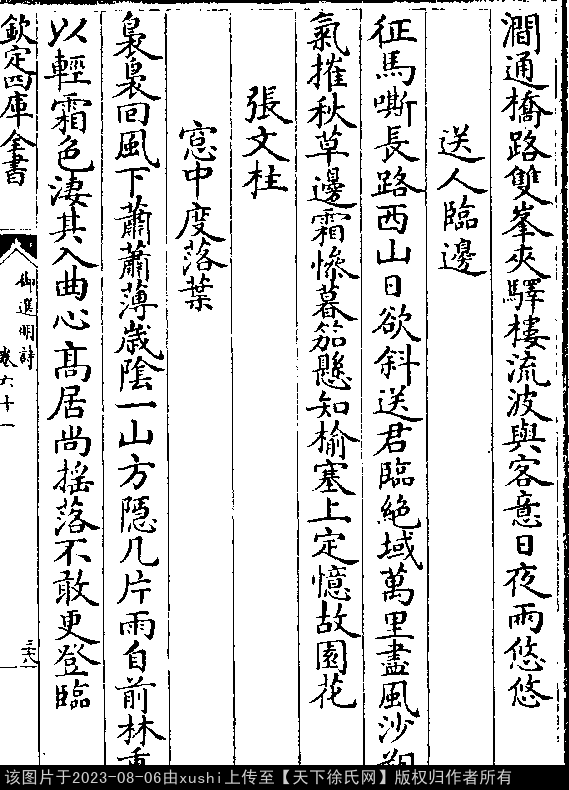 澗通橋路雙峯夾驛樓流波與客意日夜兩悠悠
送人臨邊
征馬嘶長路西山日欲斜送君臨絶域萬里盡風沙朔
氣摧秋草邊霜慘暮笳懸知榆塞上定憶故園花
張文柱
窓中度落葉
裊裊回風下蕭蕭薄歲陰一山方隠几片雨自前林重
以輕霜色淒其入曲心高居尚搖落不敢更登臨
欽定四庫全書
御選明詩
卷六十一
三十八
该图片于2023-08-06由xushi上传至【天下徐氏网】版权归作者所有